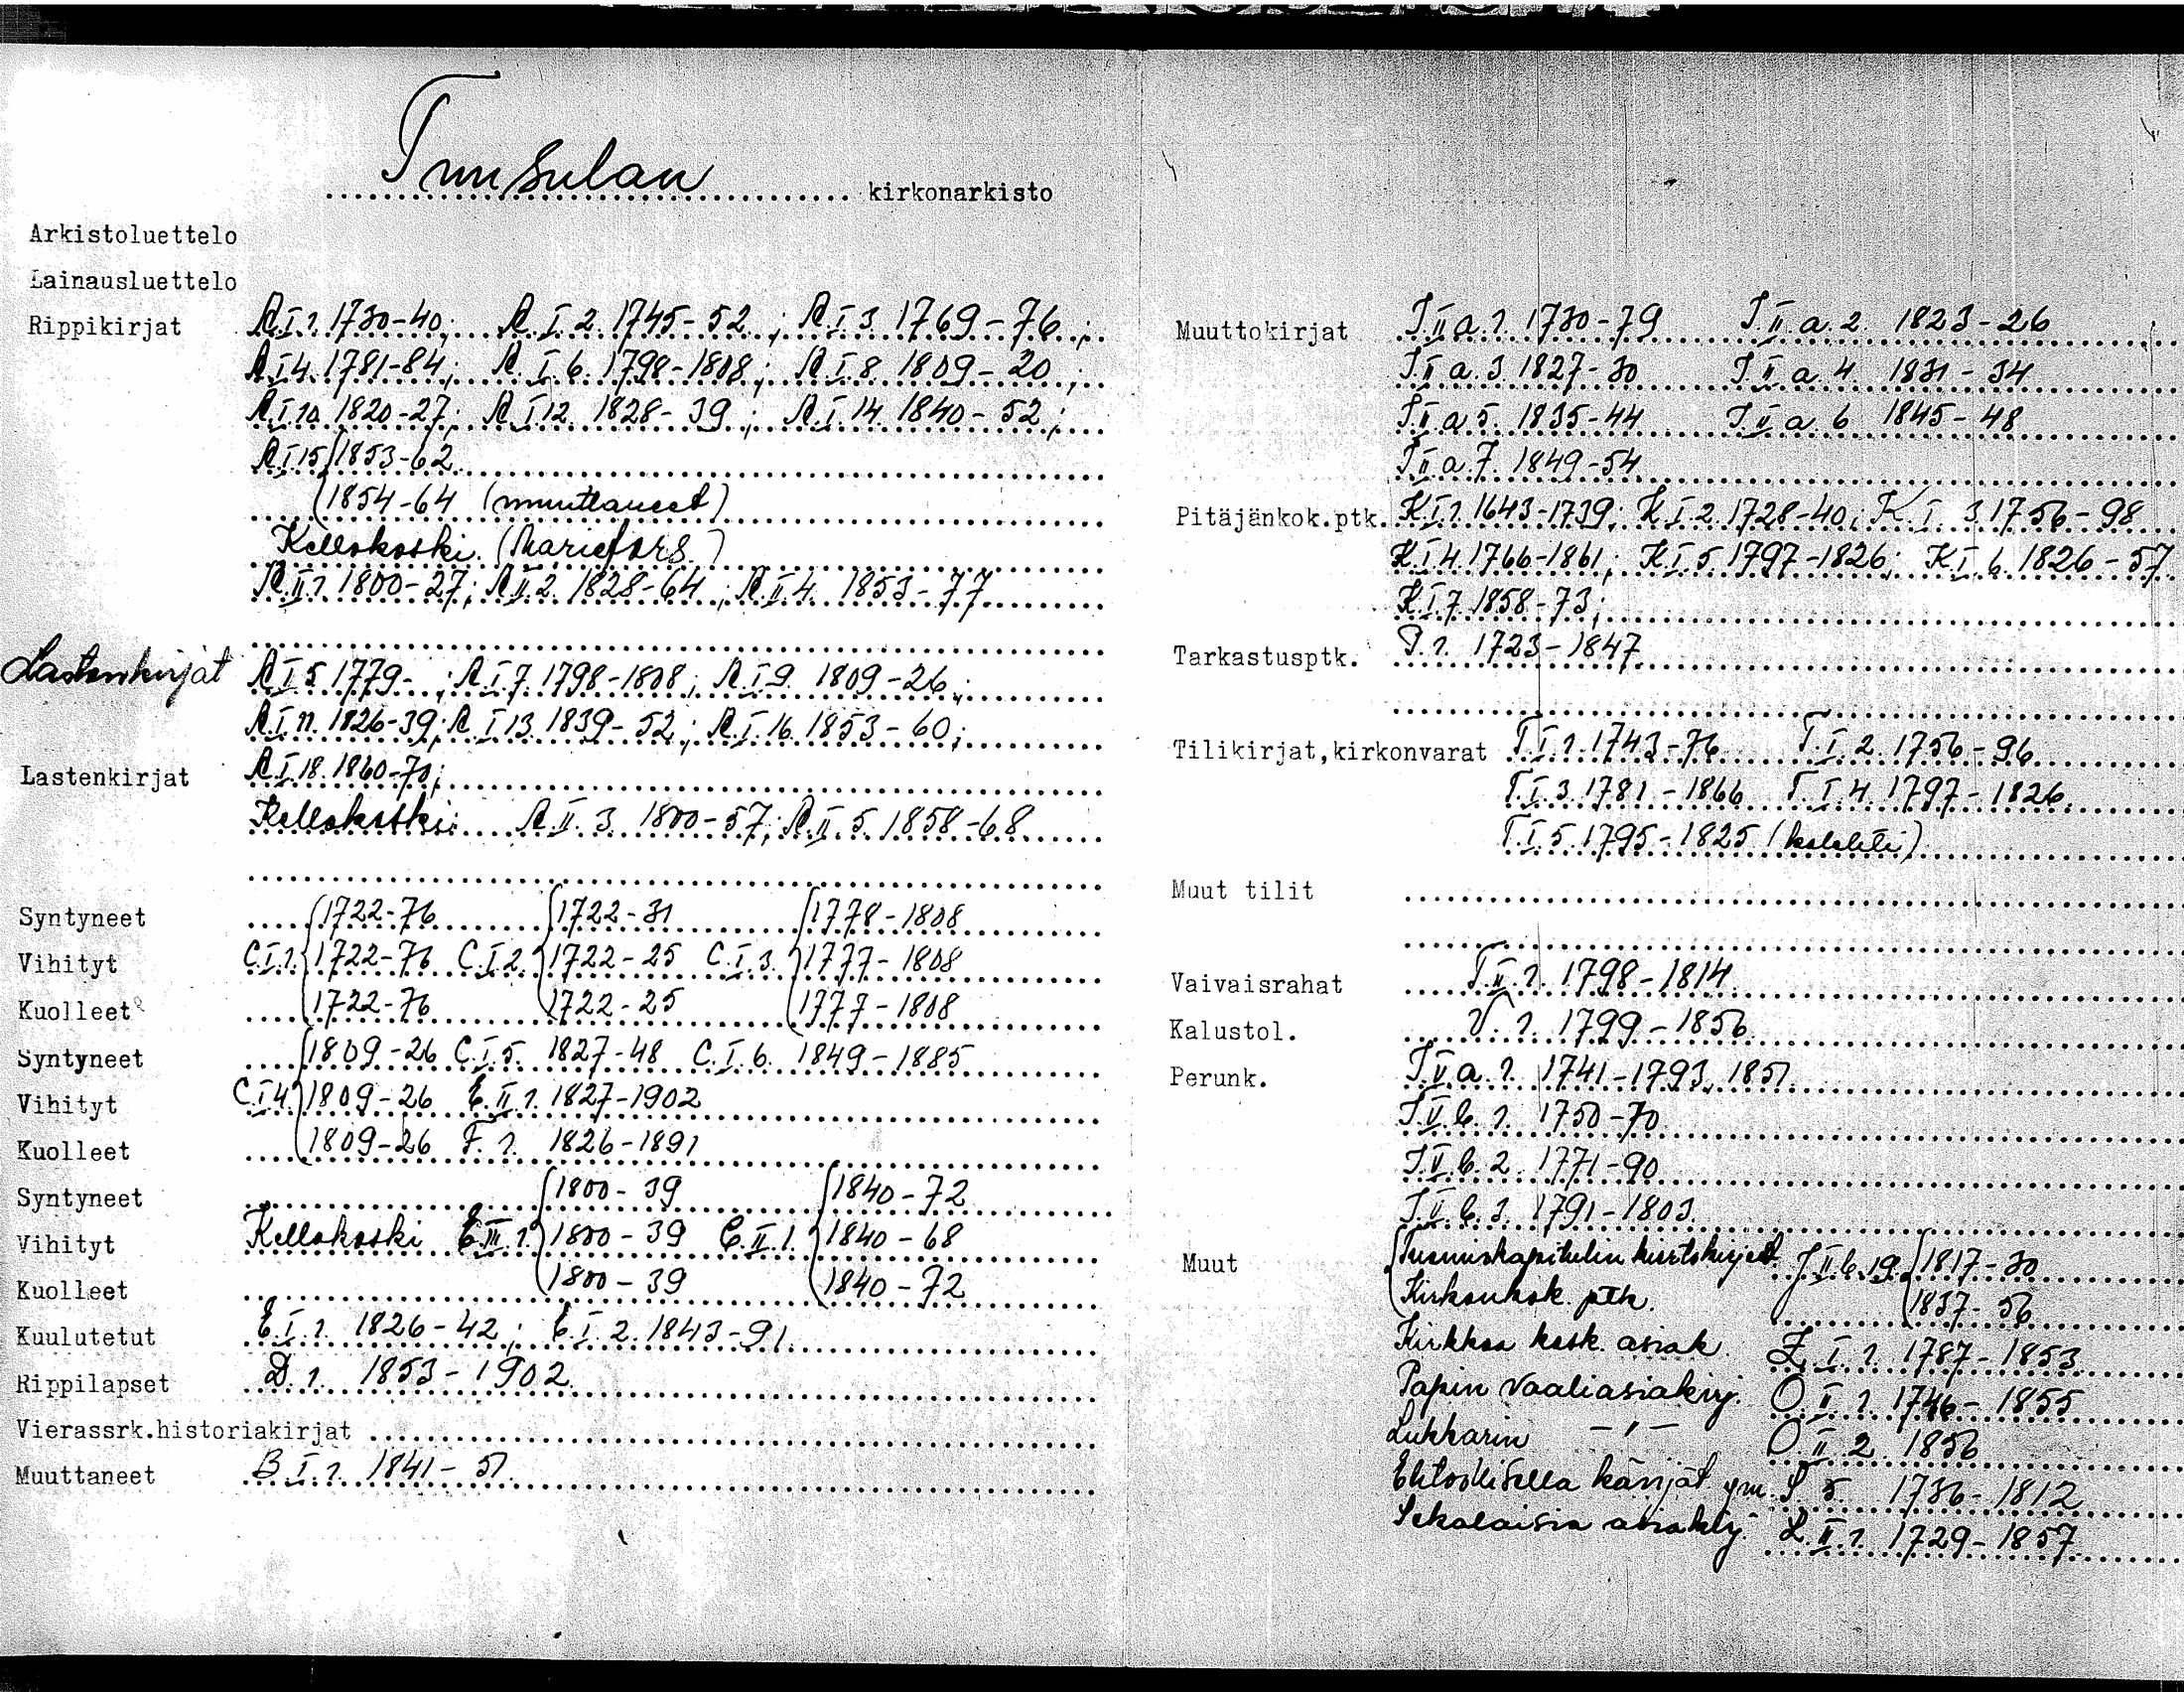 Tuusulan kirkonarkisto
Arkistoluettelo
Lainausluettelo
Rippikirjat A.I.1. 1730-40; A.I.2. 1745-52; A.I.3. 1769-76;
A.I.4. 1781-84; A.I.6. 1798-1808; A.I.8. 1809-20;
A.I.10. 1820-27; A.I.12. 1828-39; A.I.14. 1840-52;
A.I.15. 1853-62
1854-64 (muuttaneet)
Kellokoski (Mariefors)
A.II.1. 1800-27; A.II.2. 1828-64; A.II.4. 1853-77
Lastenkirjat A.I.5. 1779- ; A.I.7. 1798-1808; A.I.9. 1809-26;
A.I.11. 1826-39; A.I.13. 1839-52; A.I.16. 1853-60;
Lastenkirjat A.I.18. 1860-70;
Kellokoski: A.II.3. 1800-57; A.II.5. 1858-68
Syntyneet 1722-76 1722-31 1778-1808
Vihityt C.I.1. 1722-76 C.I.2. 1722-25 C.I.3. 1777-1808
Kuolleet 1722-76 1722-25 1777-1808
Syntyneet 1809-26 C.I.5. 1827-48 C.I.6. 1849-1885
Vihityt C.I.4. 1809-26 E.II.1. 1827-1902
Kuolleet 1809-26 F.1. 1826-1891
Syntyneet 1800-39 1840-72
Vihityt Kellokoski E.III.1. 1800-39 C.II.1. 1840-68
Kuolleet 1800-39 1840-72
Kuulutetut E.I.1. 1826-42; E.I.2. 1843-91
Rippilapset D.1. 1853-1902
Vierassrk.historiakirjat
Muuttaneet B.I.1. 1841-51
Muuttokirjat I.II.a.1. 1730-79 I.II.a.2. 1823-26
I.II.a.3. 1827-30 I.II.a.4. 1831-34
I.II.a.5. 1835-44 I.II.a.6. 1845-48
I.II.a.7. 1849-54
Pitäjänkok.ptk. K.I.1. 1643-1739; K.I.2. 1728-40; K.I.3. 1756-98
K.I.4. 1766-1861; K.I.5. 1797-1826; K.I.6. 1826-57
K.I.7. 1858-73;
Tarkastusptk. P.1. 1723-1847
Tilikirjat,kirkonvarat T.I.1. 1743-76 T.I.2. 1756-96
T.I.3. 1781-1866 T.I.4. 1797-1826
T.I.5. 1795-1825 (kolehti)
Muut tilit
Vaivaisrahat T.II.1. 1798-1814
Kalustol. V.1. 1799-1856
Perunk. I.V.a.1. 1741-1793, 1851
I.V.b.1. 1750-70
I.V.b.2. 1771-90
I.V.b.3. 1791-1803
Muut Tuomiokapitulin kiertokirjeet J.II.b.19. 1817-30
Kirkonkok. ptk. 1837-56
Kirkkoa kosk. asiak. Z.I.1. 1787-1853
Papin vaaliasiakirj. O.II.1. 1746-1855
Lukkarin -"- O.II.2. 1856
Ehtoollisella kävijät ym. S 5. 1786-1812
Sekalaisia asiakirj. L.II.1. 1729-1857